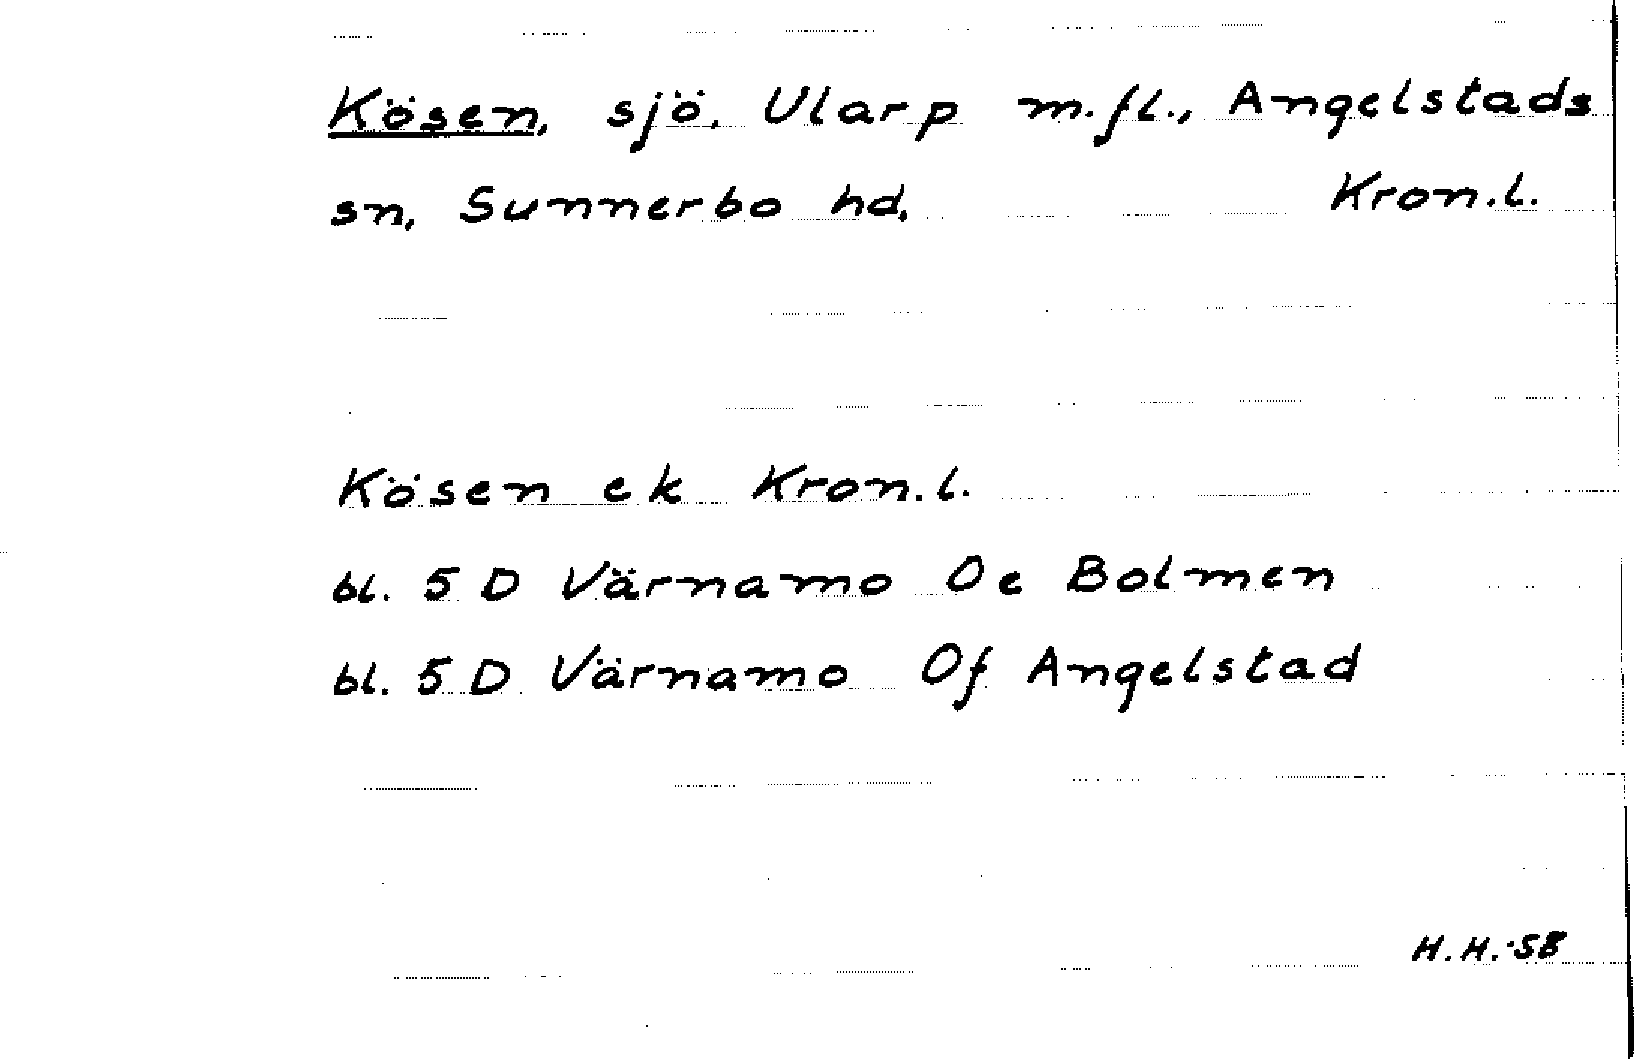 Kösen, sjö, Ularp m.fl., Angelstads
sn, Sunnerbo hd, Kron.l.
Kösen ek Kron.l.
bl. 5 D Värnamo Oe Bolmen
bl. 5 D Värnamo Of Angelstad
H.H.-58